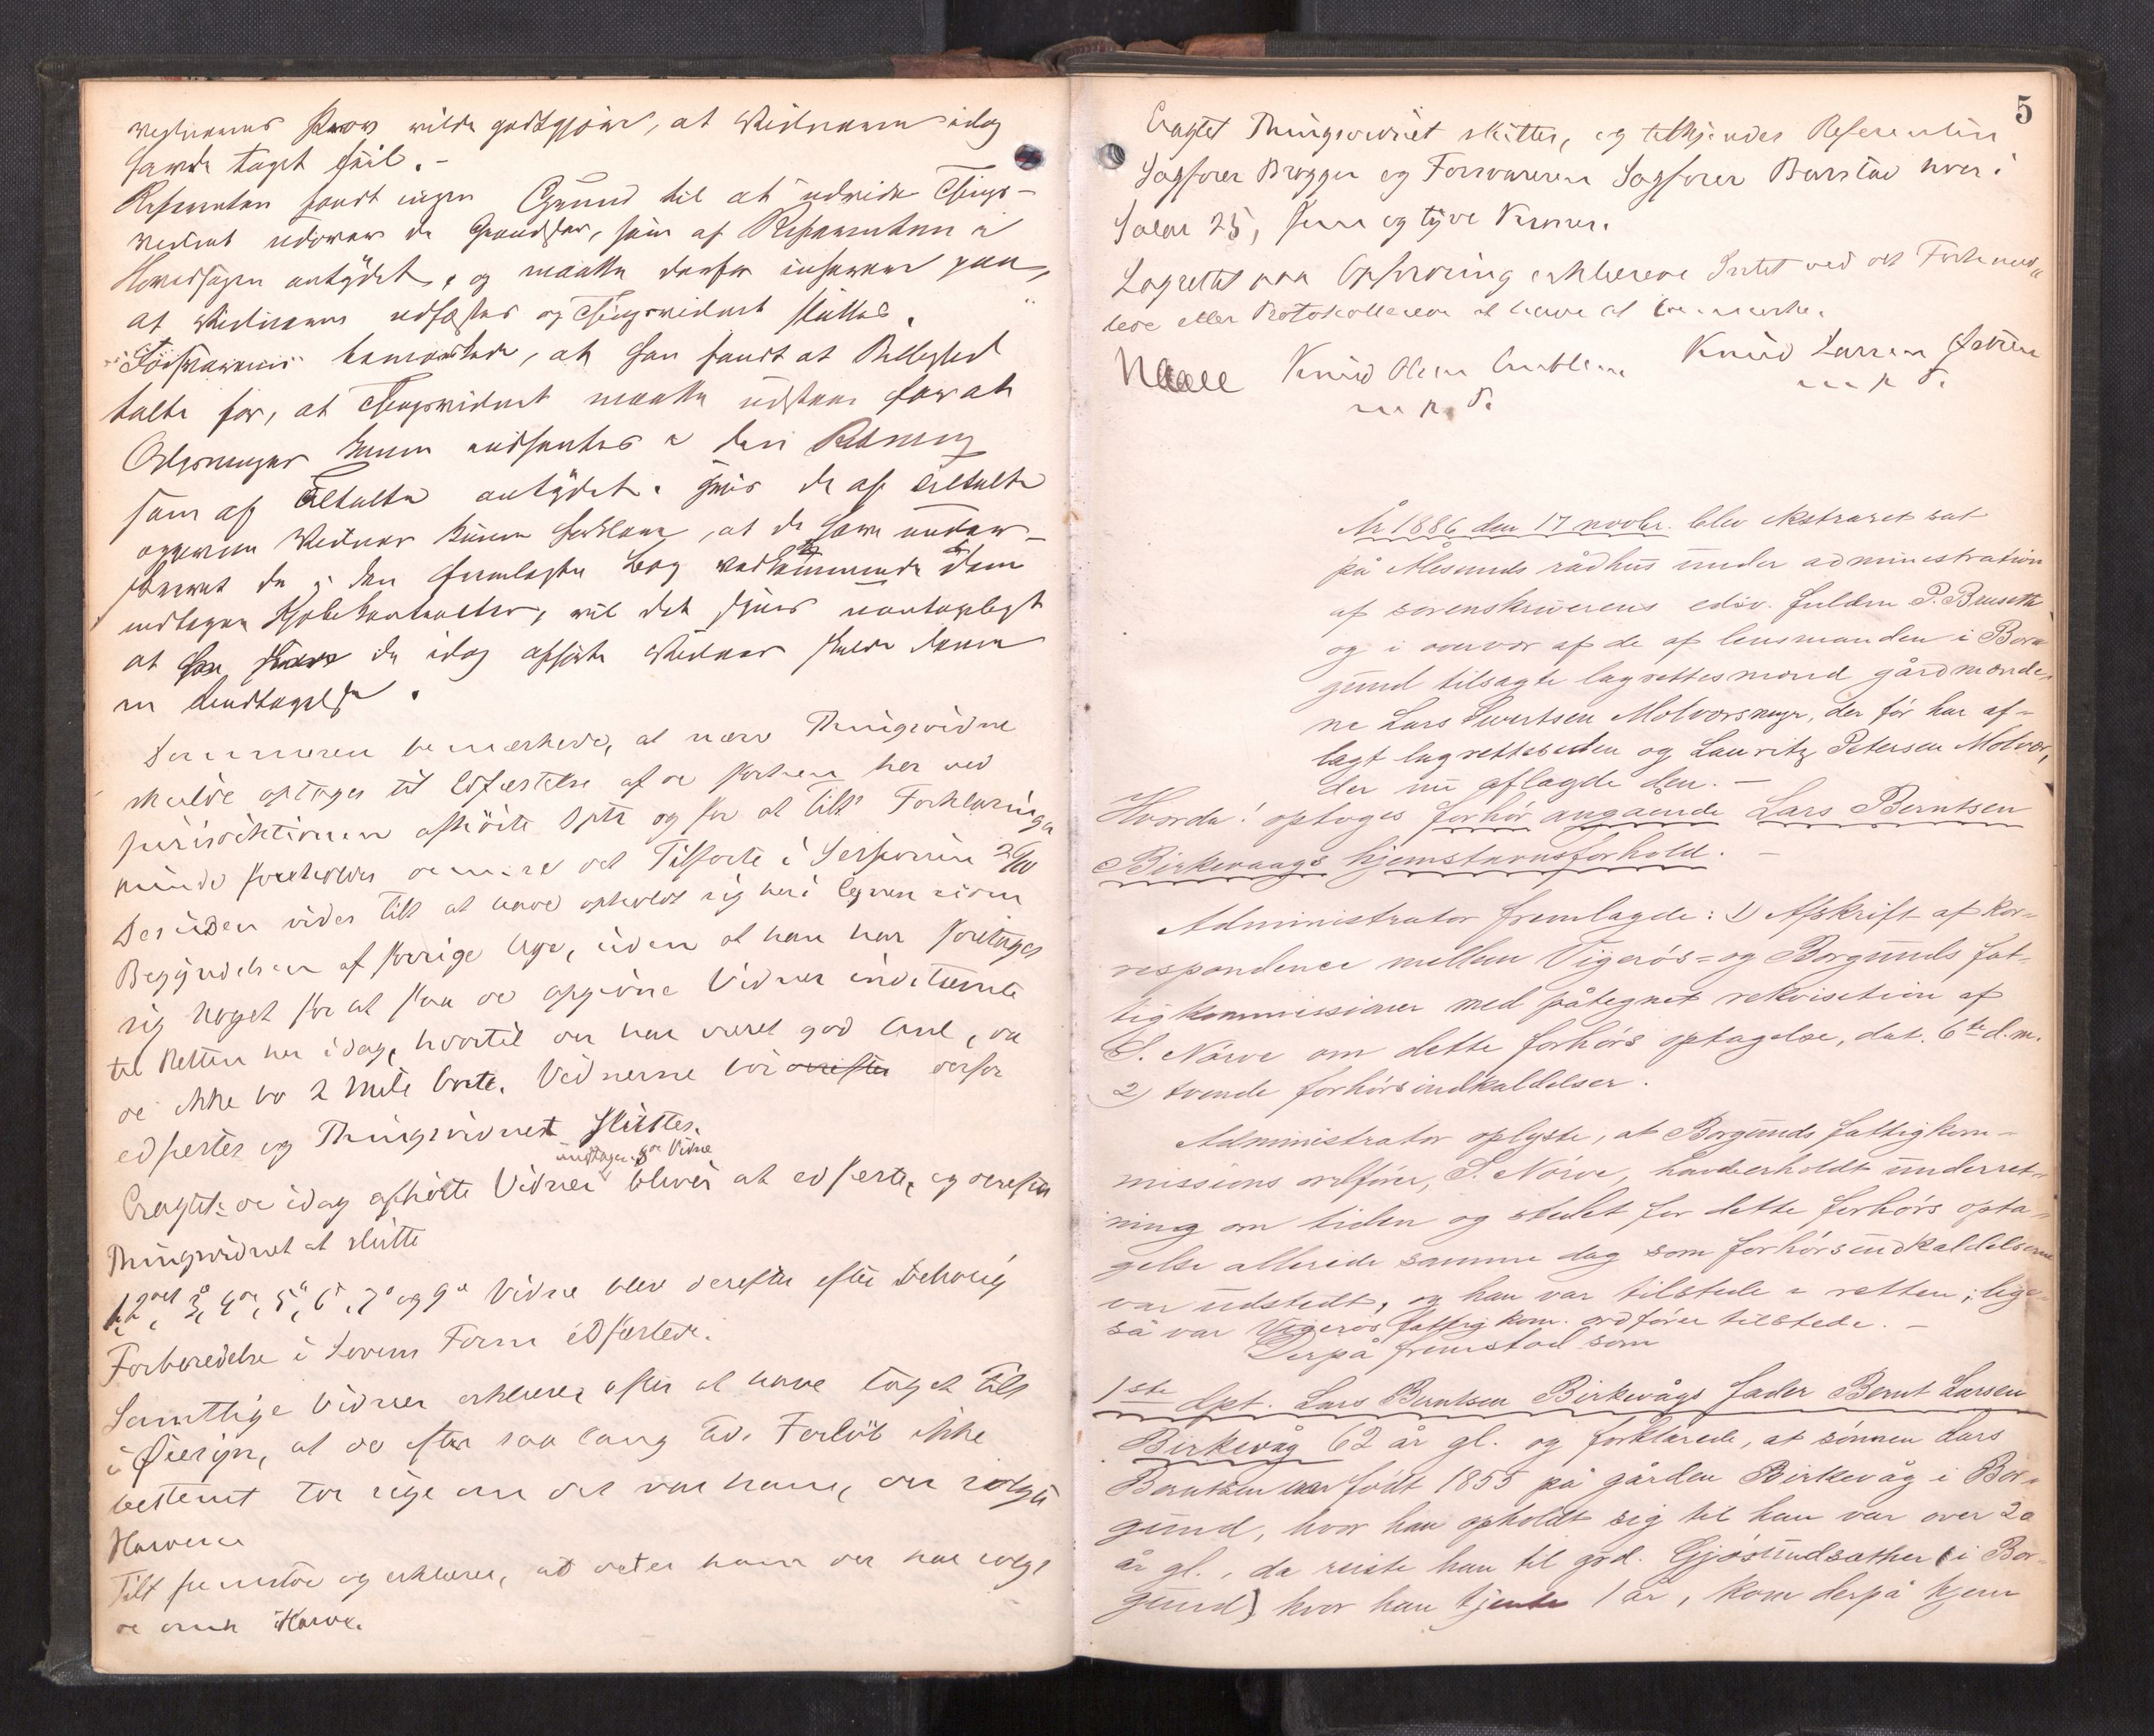 vilde godtgjøre, at Vidnerne idag
havde taget feil. -
Referenten fandt ingen Grund til at udvide Things-
vidnet udover de Grændser, som af Referenten i
Hovedsagen antydet, og maatte derfor insistere paa,
at Vidnerne edfæstes og Thingsvidnet sluttes.
bemærkede, at han fandt at Billighed
talte for, at Thingsvidnet maatte udstaa for at
Oplysninger kunne indhentes i den Retning
som af Tiltalte antydet. Hvis de af Tiltalte
opgivne Vidner kunne forklare, at de have under-
skrevet de i den fremlagte Bog vedkommende dem
indtagne Kjøbekontrakter, vil det synes uantageligt
at de idag afhørte Vidner skulde kunne
en
bemærkede, at nære Thingsvidne
skulde optages til Edfæstelse af de forhen her ved
Jurisdiktionen afhørte Dptr og for at Tilt's Forklaringer
kunde foreholdes det Tilførte i Sessionen
Desuden vides Tilt at have opholdt sig her i Byen siden
Begyndelsen af forrige Uge, uden at han har foretaget
sig noget for at faa de opgivne Vidner indstævnte
til Retten her idag, hvortil der har været god Anl, da
de ikke bo 2 Mile borte. Vidnerne bør derfor
edfæstes og Thingsvidnet sluttes.
undtagen 8de Vidne
Eragtet: de idag afhørte Vidner bliver at edfæste, og derefter
Thingsvidnet at slutte
1, 2det, 3de, 4de, 5te, 6te, 7de og 9de Vidne blev derefter efter behørig
Forberedelse i Lovens Form edfæstede.
Samtlige Vidner erklærer efter at have taget Tilt
i Øiesyn, at de efter saa lang Tids Forløb ikke
bestemt tør sige om det var ham, der solgte
Harverne
Tilt fremstod og erklærer, at det er ham der har solgt
de omh Harve.
5
Eragtet Thingsvidnet sluttes, og tilkjendes Referenten
Sagfører Brogger og Forsvareren Sagfører Barstad hver i
Salær 25, fem og tyve Kroner.
Lagrettet paa Opfordring erklærede Intet ved det Forhand-
lede eller Protokollerede at have at bemærke.
Knud Olsen Knud Larsen
m. p. P. m p P.
År 1886 den 17 novbr. blev ekstraret sat
på Ålesunds rådhus under administration
af sorenskriverens edsv. fuldm P. Bruseth
og i overvær af de af lensmanden i Bor-
gund tilsagte lagrettesmænd gårdmænde-
ne Lars Sivertsen Molværsmyr, der før har af-
lagt lagretteseden og Lauritz Petersen Molvær,
der nu aflagde den. -
Hvorda! optoges forhør angaaende Lars Berntsen
Birkevaags hjemstavnsforhold. -
Administrator fremlagde: 1) Afskrift af kor-
respondence mellem Vigerøs- og Borgunds fat-
tigkommissioner med påtegnet rekvisition af
S. Nørve om dette forhørs optagelse, dat. 6te d.m.
2) tvende forhørsindkaldelser.
Administrator oplyste, at Borgunds fattigkom-
missions ordfører, S. Nørve, havde erholdt underret-
ning om tiden og stedet for dette forhørs opta-
gelse allerede samme dag som forhørsindkaldelserne
var udstedt, og han var tilstede i retten; lige-
så var Vigerøs fattigkom. ordfører tilstede. -
Derpå fremstod som
1ste dpt. Lars Berntsen Birkevågs fader Bernt Larsen
Birkevåg 62 år gl. og forklarede, at sønnen Lars
Berntsen var født 1855 på gården Birkevåg i Bor-
gund, hvor han opholdt sig til han var over 20
år gl., da reiste han til grd. Gjøsundsæther (i Bor-
gund) hvor han tjente 1 år, kom derpå hjem